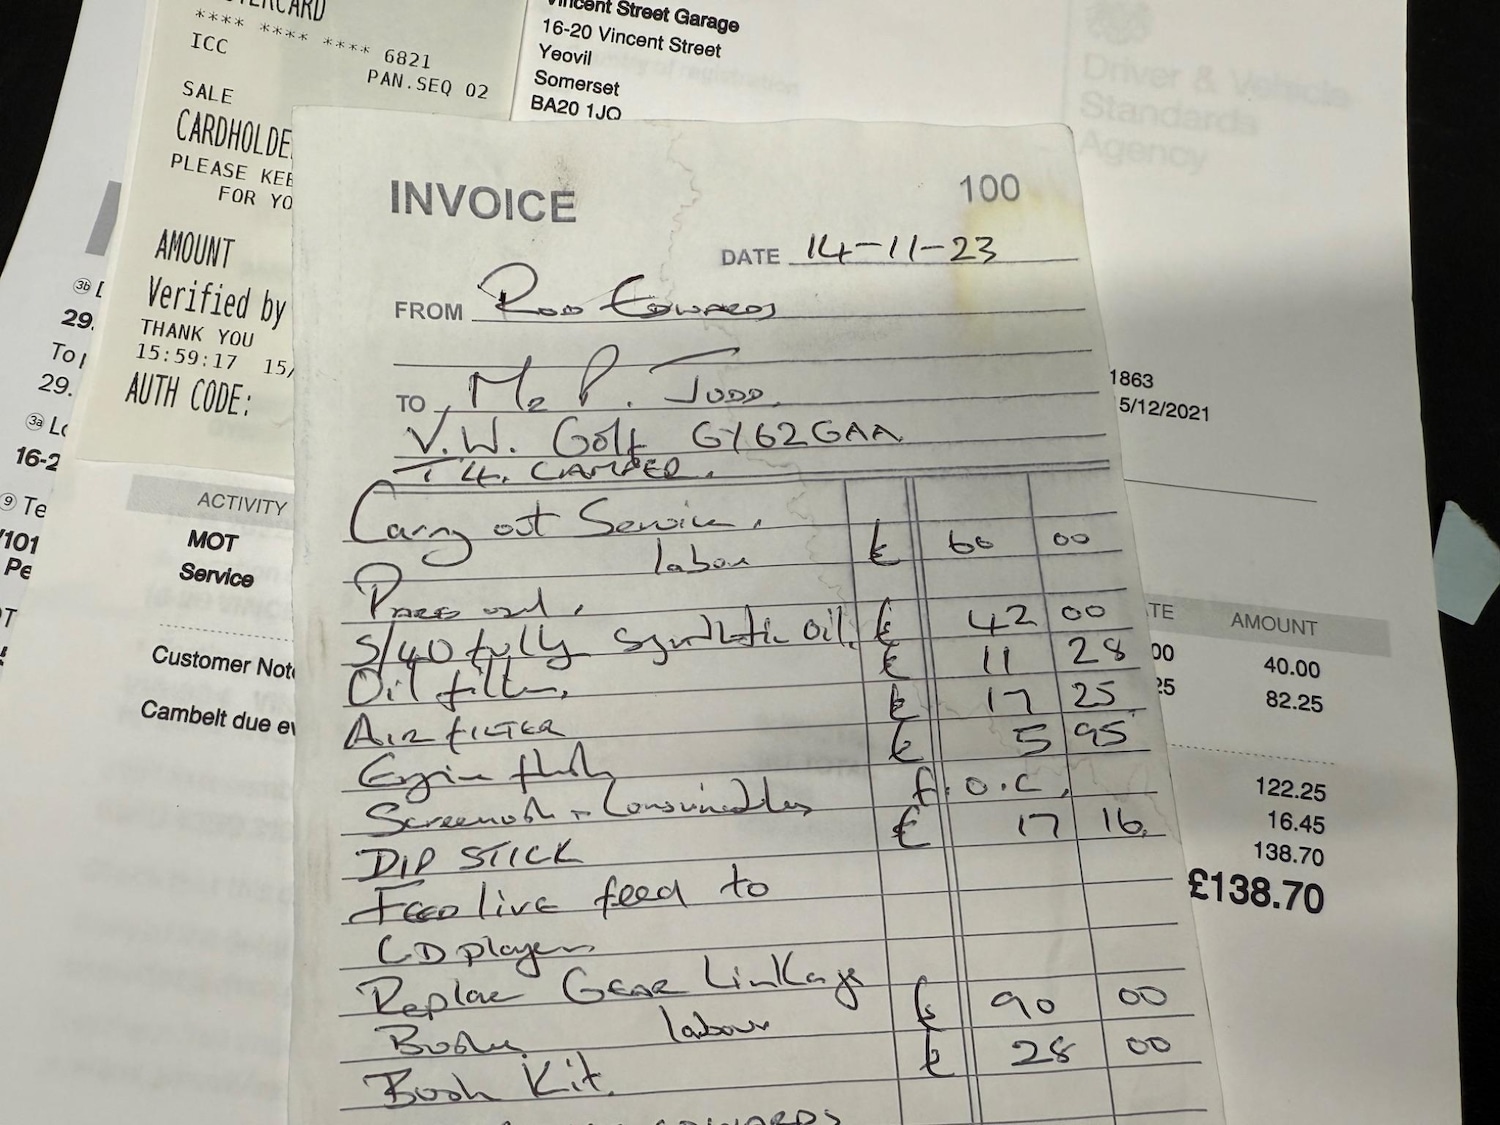 **** **** **** 6821
ICC
PAN.SEQ 02
SALE
PLEASE KEE
FOR YO
AMOUNT
Verified by
THANK YOU
15:59:17 15/
AUTH CODE:
Vincent Street Garage
16-20 Vincent Street
Yeovil
Somerset
BA20 1JQ
Driver & Vehicle
Standards
Agency
INVOICE 100
DATE 14-11-23
FROM Rod Edwards
TO Mr P. Judd.
V.W. Golf GY62GAA
T4. CAMPER.
Carry out Service.
labour £ 60 00
Parts used.
5/40 fully synthetic oil. £ 42 00
Oil filter. £ 11 28
AIR FILTER £ 17 25
Engine flush £ 5 95
Screenwash + Consumables f.o.c.
DIP STICK £ 17 16
Feed live feed to
CD player
Replace Gear Linkage
Bushes labour £ 90 00
Bush Kit. £ 28 00
3b
29.
29.
3a
16-2
9 Te
/101
Pe
ACTIVITY
MOT
Service
Customer Not
Cambelt due ev
1863
5/12/2021
TE AMOUNT
00 40.00
25 82.25
122.25
16.45
138.70
£138.70